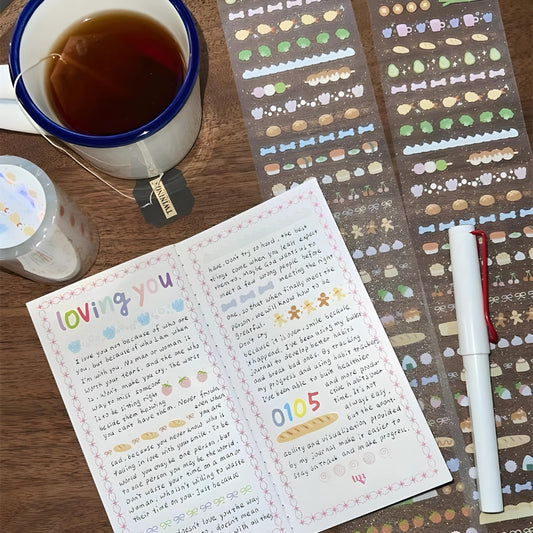 TWININGS
loving you
I love you not because of who are
you, but because of who I am when
I'm with you. No man or woman is
worth your tears, and the one who
is, won't make you cry. The worst
way to miss someone
is to be sitting right
beside them knowing
you can't have them. Never frown,
when you are
sad, because you never know who is
falling in love with your smile. To the
world you maybe one person, but
to one person you may be the world.
Don't waste your time on a man or
woman, who isn't willing to waste
their time on you. Just because
doesn't love you the way
to, doesn't mean
with all they
have. Don't try so hard, the best
things come when you least expect
them to. Maybe God wants us to
meet a few wrong people before
meeting the right
one, so that when finally meet the
person, we will know how to be
grateful.
Don't cry
because it is over, smile because
it happened. I've been using my bullet
journal to develop better habits
and break bad ones. By tracking
my progress and using habit tracker
I've been able to build healthier
0105
and more produc
tive habits over
time. It's not
always easy,
but the
ability and visualization provided
by my journal make it easier to
stay on track and make progress.